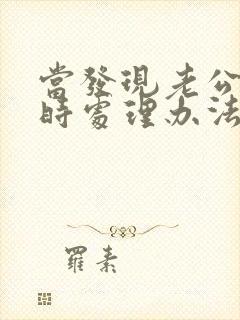 當發現老公
時處理办法
羅素